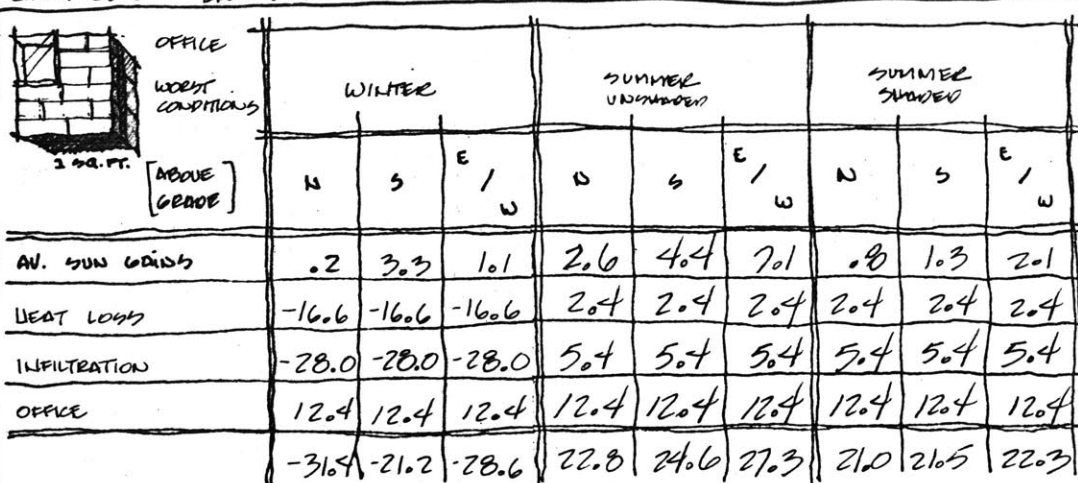 OFFICE
WORST
CONDITIONS
1 SQ. FT.
[ABOVE
GRADE]
WINTER
SUMMER
UNSHADED
SUMMER
SHADED
N S E/W N S E/W N S E/W
AV. SUN GAINS .2 3.3 1.1 2.6 4.4 7.1 .8 1.3 2.1
HEAT LOSS -16.6 -16.6 -16.6 2.4 2.4 2.4 2.4 2.4 2.4
INFILTRATION -28.0 -28.0 -28.0 5.4 5.4 5.4 5.4 5.4 5.4
OFFICE 12.4 12.4 12.4 12.4 12.4 12.4 12.4 12.4 12.4
-31.4 -21.2 -28.6 22.8 24.6 27.3 21.0 21.5 22.3